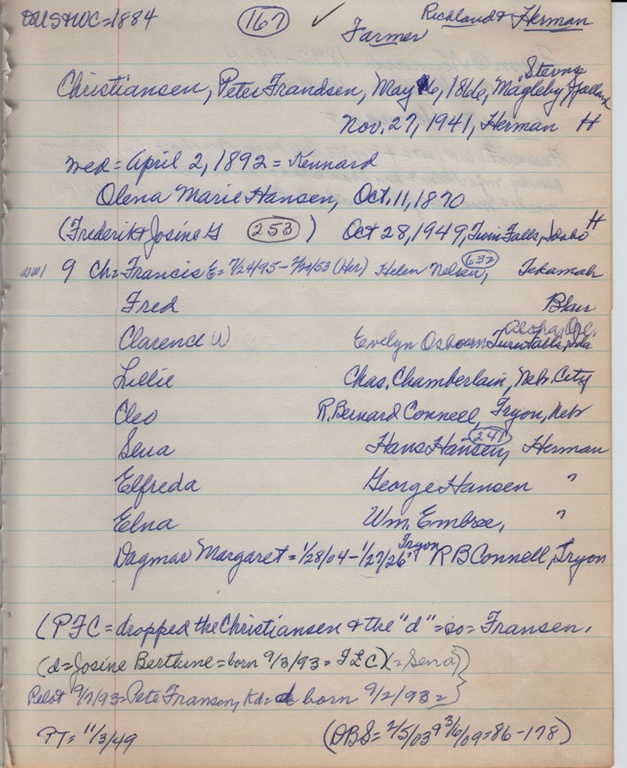 DUS+WC=1884 (167) ✓ Richland & Herman
Farmer
Stevns
Christiansen, Peter Frandsen, May 6, 1866, Magleby,
Nov. 27, 1941, Herman H
Wed = April 2, 1892 = Kennard
Olena Marie Hansen, Oct. 11, 1870
(Frederik & Josine G (253) ) Oct 28, 1949, Twin Falls, Idaho H
WW1 9 Ch = Francis E = 7/24/95 - 7/24/53 (Her) Helen Nelsen, (632) Tekamah
Fred Blair
Aloha, Ore.
Clarence W Evelyn Osborn Twin Falls, Ida
Lillie Chas. Chamberlain, Neb. City
Cleo R. Bernard Connell, Tryon, Neb
Sena Hans Hansen, (241) Herman
Elfreda George Hansen "
Elna Wm. Embree, "
Dagmar Margaret = 1/28/04 - 1/27/26 Tryon R B Connell, Tryon
(PFC = dropped the Christiansen & the "d" = so = Fransen.
(d = Josine Berthine = born 9/3/93 = FLC) (= Sena)
Pelot 9/7/93 = Pete Fransen, Kd = d born 9/2/93 = }
PT = 11/3/49 (DBS = 2/5/03 9 3/6/09 = 86 - 178)